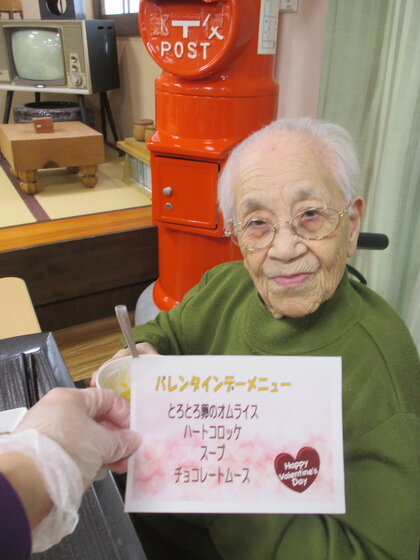 〒
POST
バレンタインデーメニュー
とろとろ卵のオムライス
ハートコロッケ
スープ
チョコレートムース
Happy
Valentine's
Day